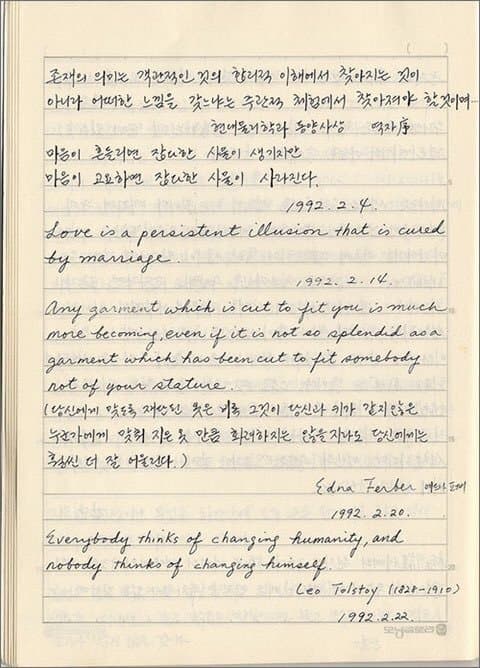 ( )
존재의 의미는 객관적인 것의 합리적 이해에서 찾아지는 것이
아니라 어떠한 느낌을 갖느냐는 주관적 체험에서 찾아져야 할 것이며…
현대물리학과 동양사상 역자序
마음이 흔들리면 잡다한 사물이 생기지만
마음이 고요하면 잡다한 사물이 사라진다.
1992. 2. 4.
Love is a persistent illusion that is cured
by marriage.
1992. 2. 14.
Any garment which is cut to fit you is much
more becoming, even if it is not so splendid as a
garment which has been cut to fit somebody
not of your stature.
(당신에게 맞도록 재단된 옷은 비록 그것이 당신과 키가 같지 않은
누군가에게 맞춰 지은 옷 만큼 화려하지는 않을지라도 당신에게는
훨씬 더 잘 어울린다.)
Edna Ferber
1992. 2. 20.
Everybody thinks of changing humanity, and
nobody thinks of changing himself.
Leo Tolstoy (1828-1910)
1992. 2. 22.
모닝글로리